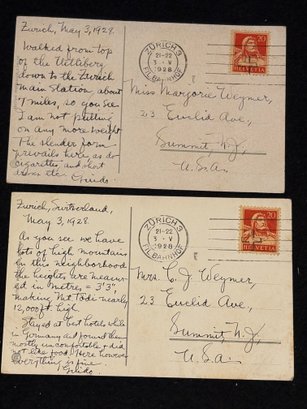 Zurich, May 3, 1928.
Walked from top
of the Uetliberg
down to the Zurich
main Station about
7 miles, so you see
I am not putting
on any more weight
The slender form
prevails here as do
cigarettes, and short
ZÜRICH 9
21-22
3·V
1928
FIL.BAHNHOF
20
HELVETIA
Miss Marjorie Weymer,
23 Euclid Ave,
Summit N.J,
U.S.A.
Zurich, Switzerland,
May 3, 1928.
As you see we have
lots of high mountains
in this neighborhood
the heights are measur-
ed in Metres = 3'3",
making Not Todi nearly
12,000 ft. high.
Stayed at best hotels while
in Germany and found them
mostly uncomfortable and did
not like food. Here however
everything is fine.
ZÜRICH 9
21-22
3·V
1928
FIL.BAHNHOF
20
HELVETIA
Mrs C. J Weymer,
23 Euclid Ave,
Summit N.J,
U.S.A.